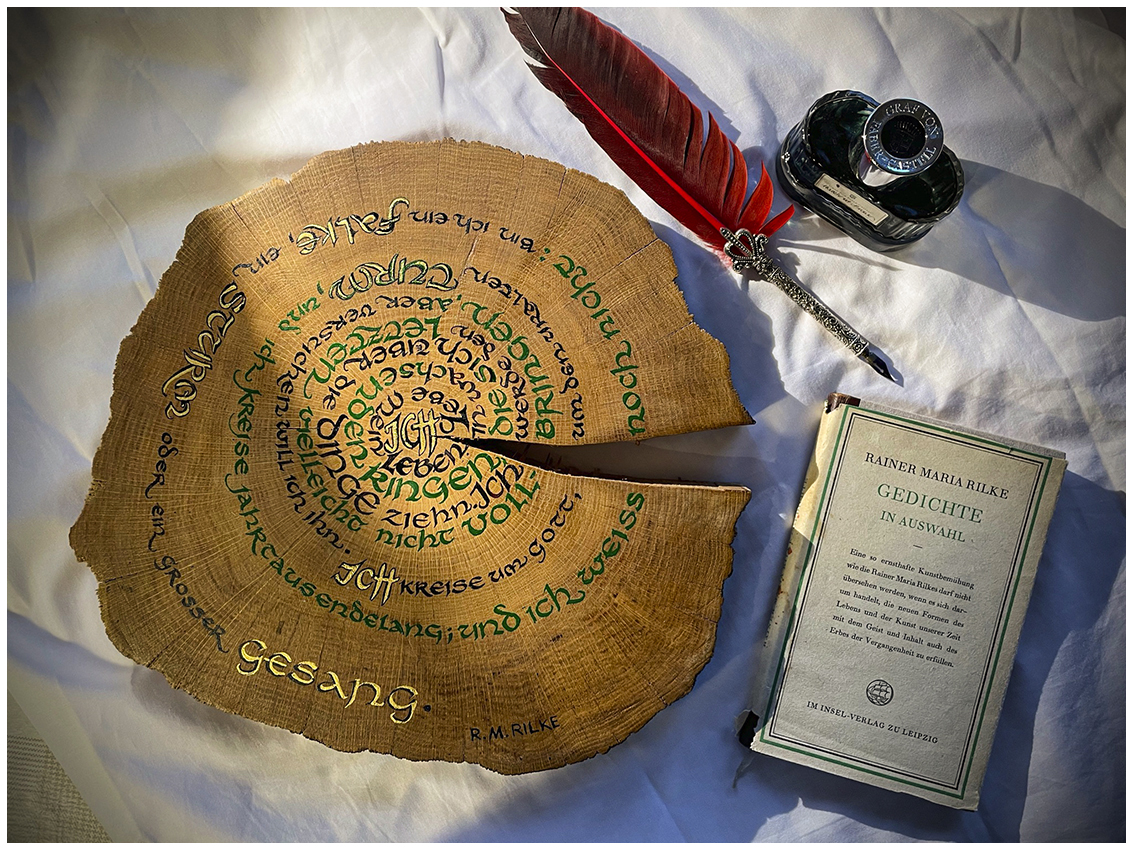 ICH lebe mein LEBEN in wachsenden RINGEN,
die sich über die DINGE ziehn.
ICH werde den LETZTEN vielleicht nicht VOLL-BRINGEN,
aber versuchen will ich ihn.
ICH kreise um Gott, um den uralten TURM,
und ich kreise jahrtausendelang;
und ich weiss noch nicht: bin ich ein FALKE, ein STURM
oder ein grosser GESANG.
R.M. RILKE
GRAF VON FABER-CASTELL
RAINER MARIA RILKE
GEDICHTE
IN AUSWAHL
Eine so ernsthafte Kunstbemühung
wie die Rainer Maria Rilkes darf nicht
übersehen werden, wenn es sich dar-
um handelt, die neuen Formen des
Lebens und der Kunst unserer Zeit
mit dem Geist und Inhalt auch des
Erbes der Vergangenheit zu erfüllen.
IM INSEL-VERLAG ZU LEIPZIG